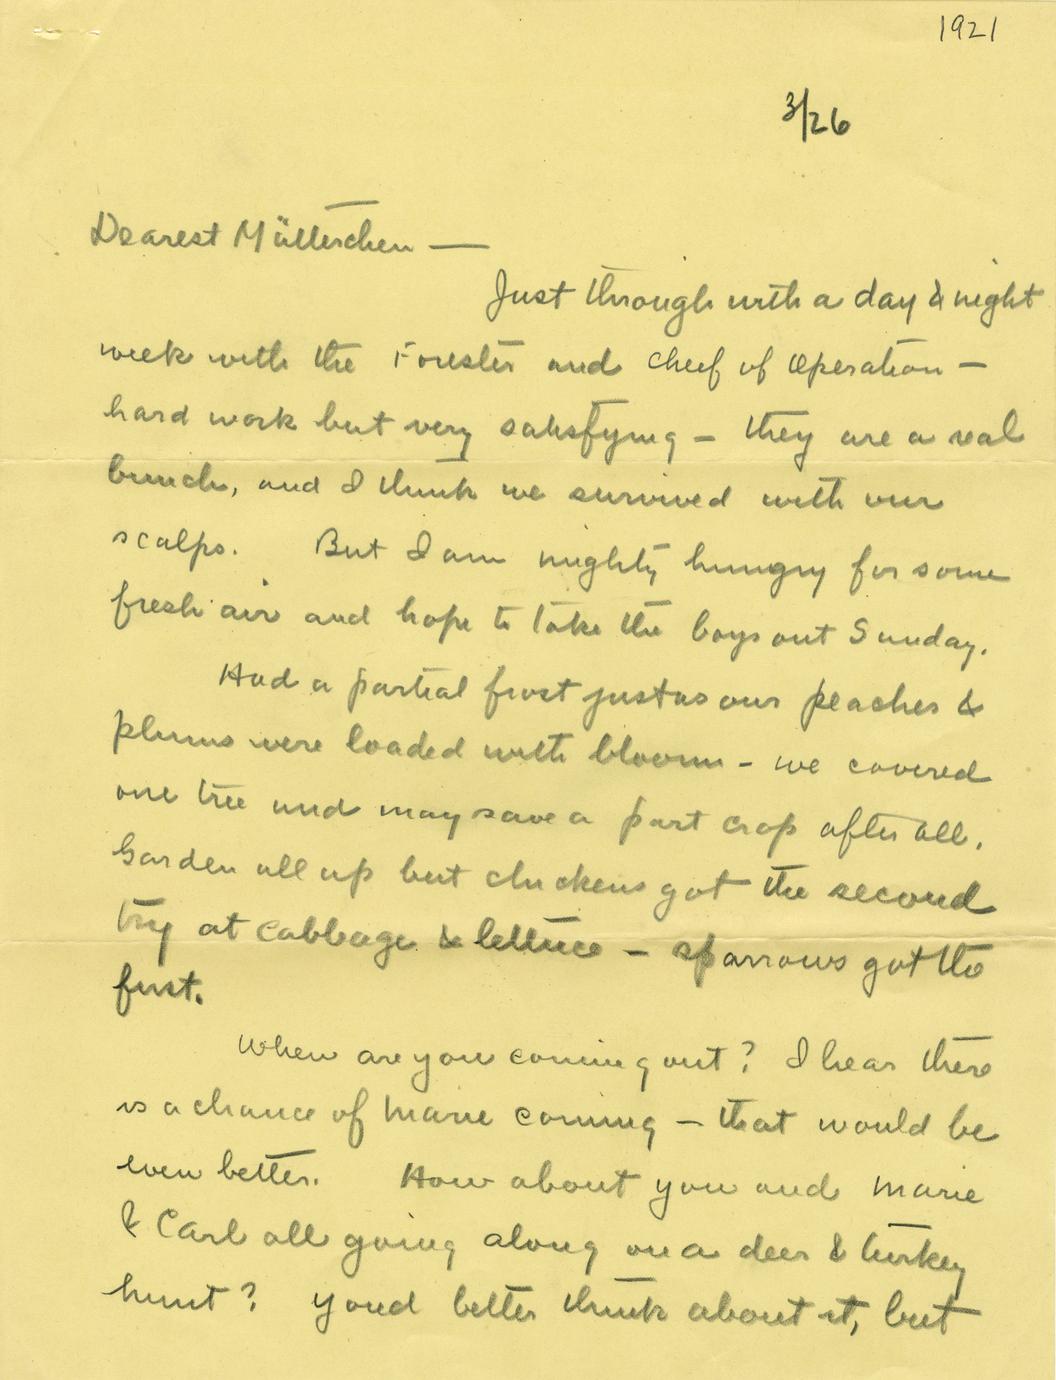 1921
3/26
Dearest Mütterchen —
Just through with a day & night
week with the Forester and Chief of Operation —
hard work but very satisfying — they are a real
bunch, and I think we survived with our
scalps. But I am mighty hungry for some
fresh air and hope to take the boys out Sunday.
Had a partial frost just as our peaches &
plums were loaded with bloom — we covered
one tree and may save a part crop after all.
Garden all up but chickens got the second
try at cabbage & lettuce — sparrows got the
first.
When are you coming out? I hear there
is a chance of Marie coming — that would be
even better. How about you and Marie
& Carl all going along on a deer & turkey
hunt? youd better think about it, but